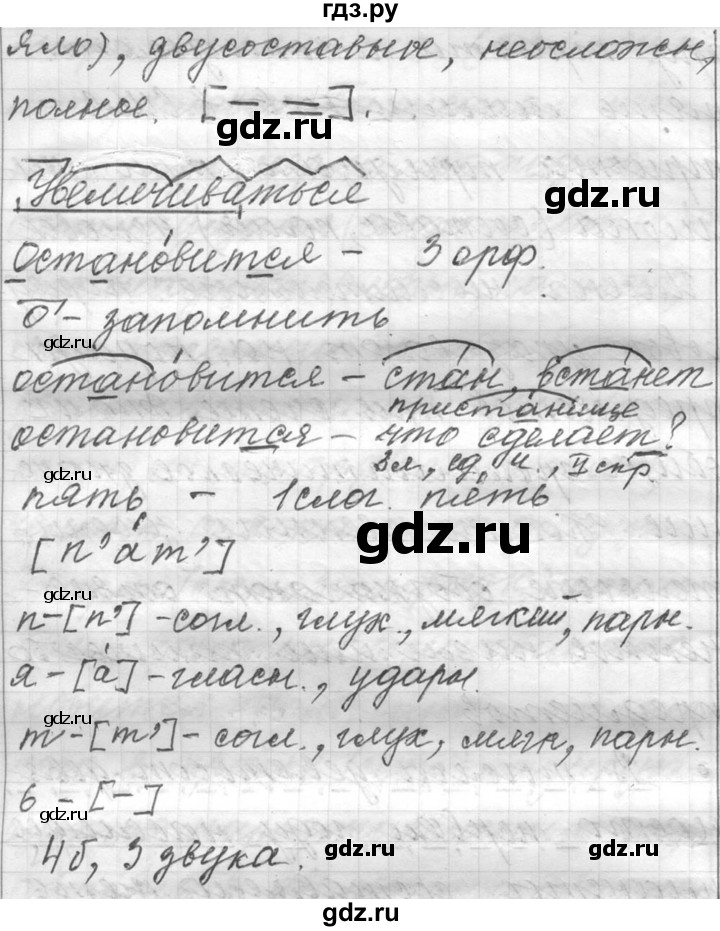 гдз.ру
яло), двусоставные, неосложн.,
полное. [— =].
gdz.ru
Увеличиваться
gdz.ru
gdz.ru
Остановится – 3 орф.
о – запомнить
gdz.ru
остановится – стан, встанет
пристанище
остановится – что сделает?
3 л., ед. ч., II спр.
gdz.ru
пять – 1 слог. пять
gdz.ru
[п'ат']
gdz.ru
п – [п'] – согл., глух., мягкий, парн.
я – [а] – гласн., ударн.
gdz.ru
т – [т'] – согл., глух, мягк, парн.
ь – [–]
gdz.ru
4 б, 3 звука.
gdz.ru
gdz.ru
gdz.ru